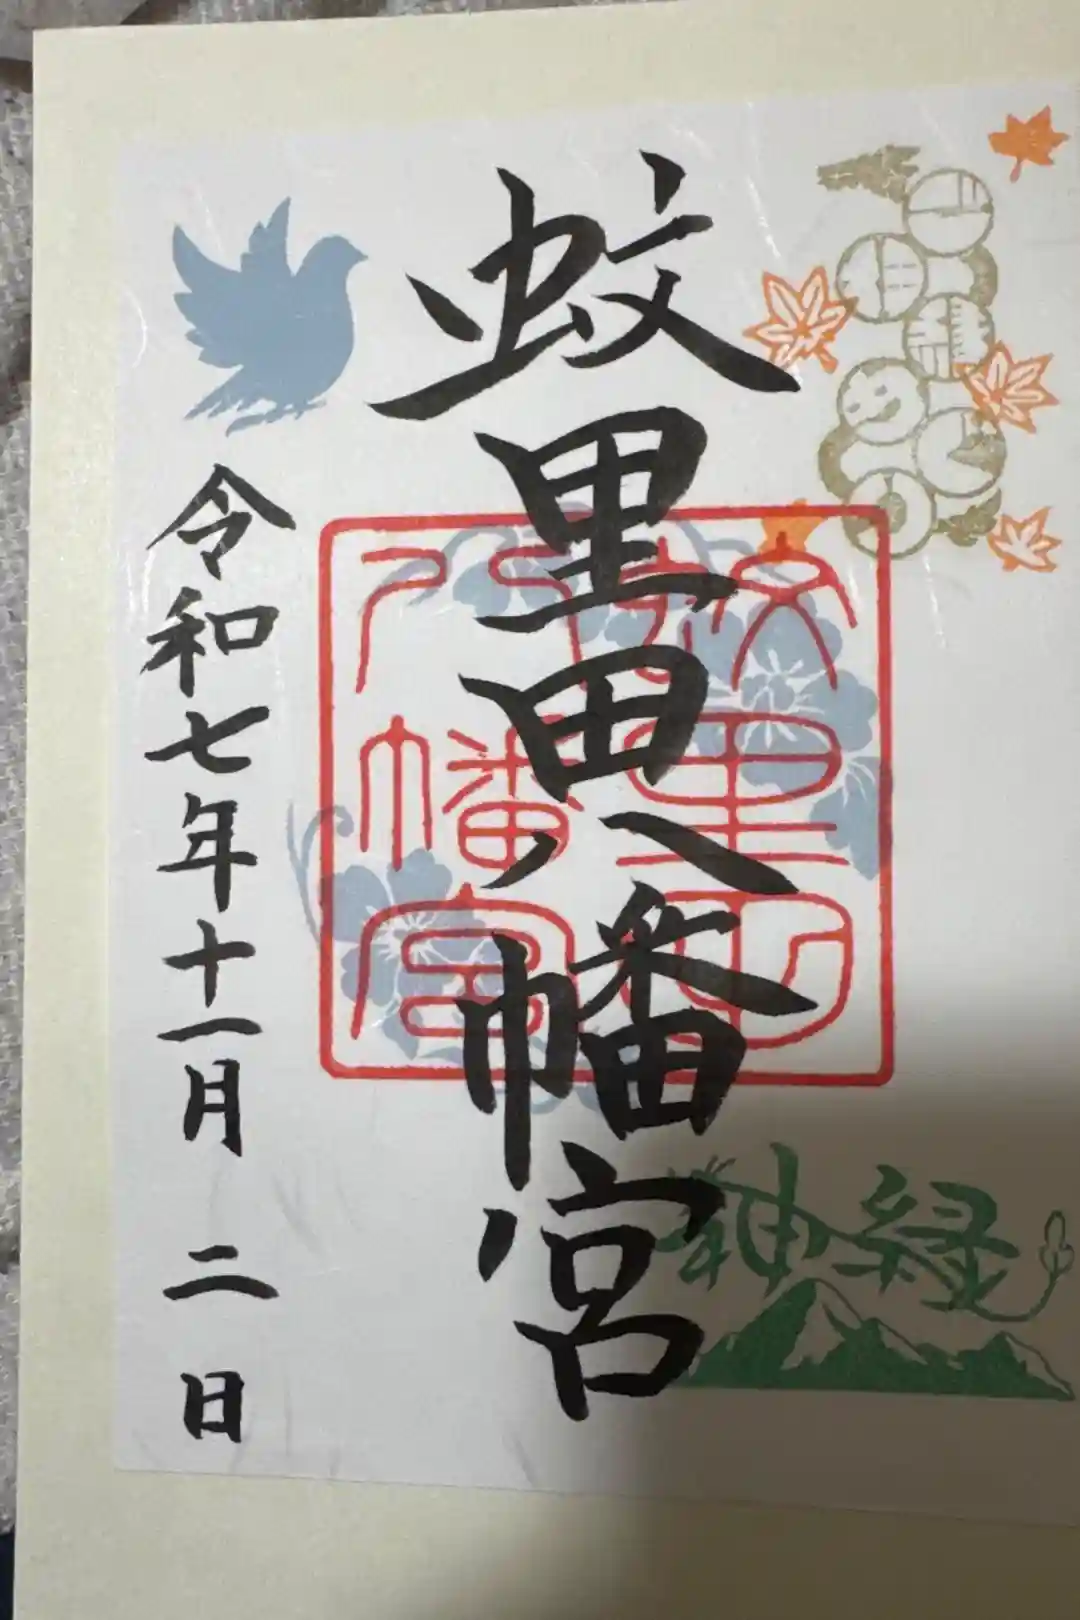 蚊里田八幡宮
蚊里田
八幡宮
神緑
令和七年十一月二日